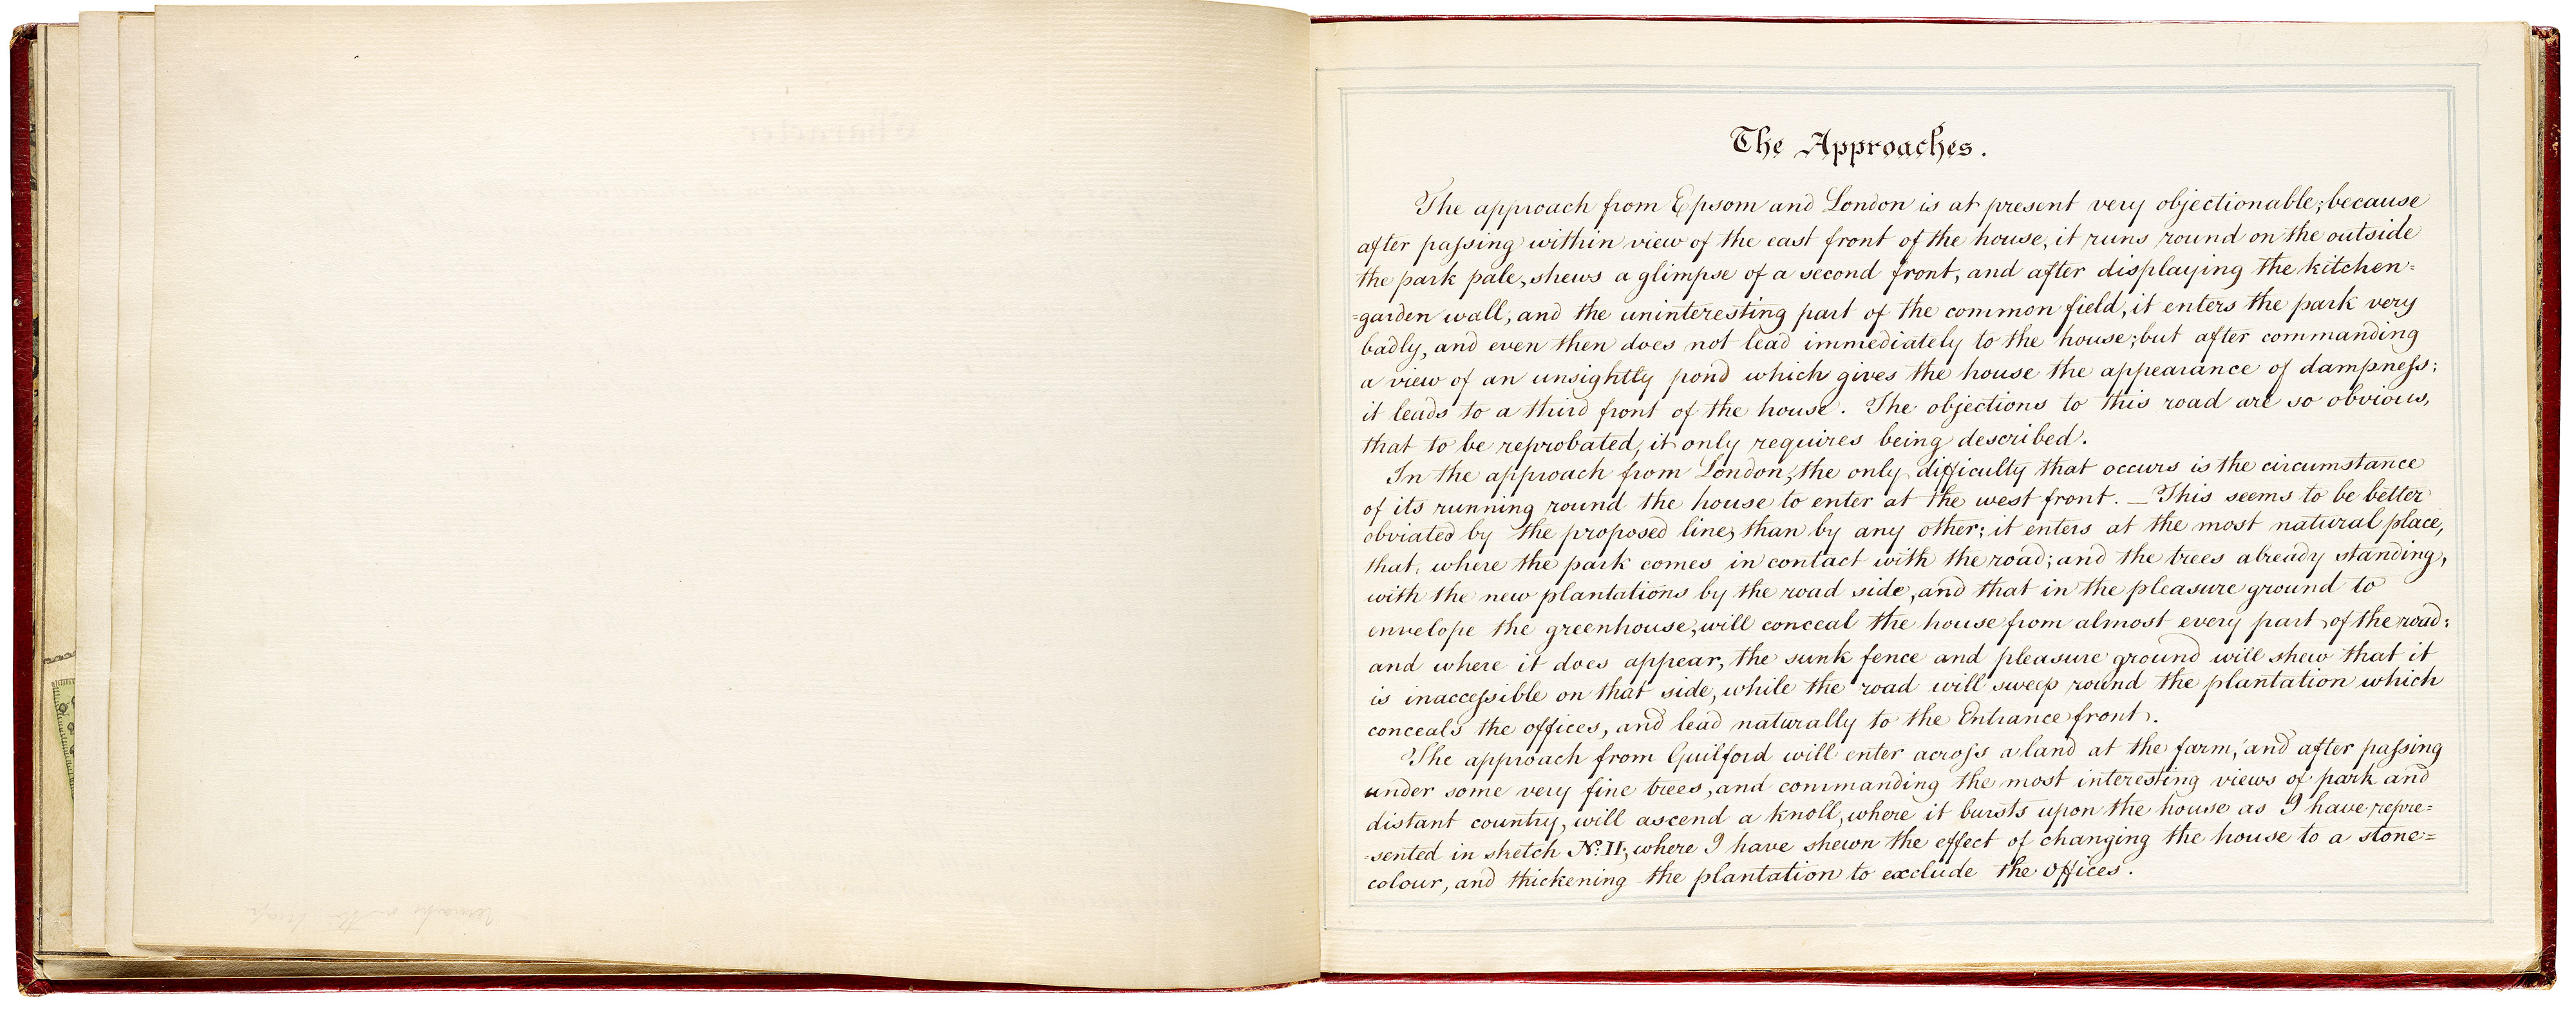 The Approaches.
The approach from Epsom and London is at present very objectionable; because
after paſsing within view of the east front of the house, it runs round on the outside
the park pale, shews a glimpse of a second front, and after displaying the kitchen=
=garden wall, and the uninteresting part of the common field, it enters the park very
badly, and even then does not lead immediately to the house; but after commanding
a view of an unsightly pond which gives the house the appearance of dampneſs:
it leads to a third front of the house. The objections to this road are so obvious,
that to be reprobated, it only requires being described.
In the approach from London, the only difficulty that occurs is the circumstance
of its running round the house to enter at the west front. — This seems to be better
obviated by the proposed line, than by any other; it enters at the most natural place,
that, where the park comes in contact with the road; and the trees already standing,
with the new plantations by the road side, and that in the pleasure ground to
envelope the greenhouse, will conceal the house from almost every part of the road:
and where it does appear, the sunk fence and pleasure ground will shew that it
is inacceſsible on that side, while the road will sweep round the plantation which
conceals the offices, and lead naturally to the Entrance front.
The approach from Guilford will enter acroſs a land at the farm, and after paſsing
under some very fine trees, and commanding the most interesting views of park and
distant country, will ascend a knoll, where it bursts upon the house as I have repre=
=sented in sketch No. II, where I have shewn the effect of changing the house to a stone=
colour, and thickening the plantation to exclude the offices.